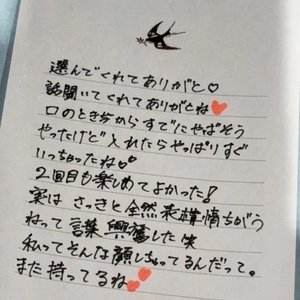 選んでくれてありがと♡
話聞いてくれてありがとね♥
口のときかからすでにやばそう
やったけど入れたらやっぱりすぐ
いっちゃったね♡
2回目も楽しめてよかった!
実はさっきと全然表情ちがう
ねって言葉興奮した笑
私ってそんな顔しちゃってるんだって。
また待ってるね♥